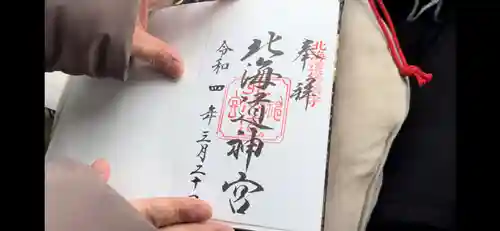 奉拝
北海道神宮
令和四年三月二十